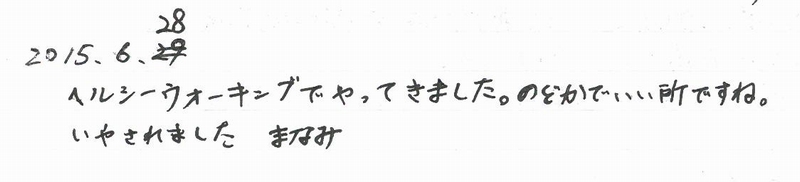 28
2015.6.29
ヘルシーウォーキングでやってきました。のどかでいい所ですね。
いやされました まなみ